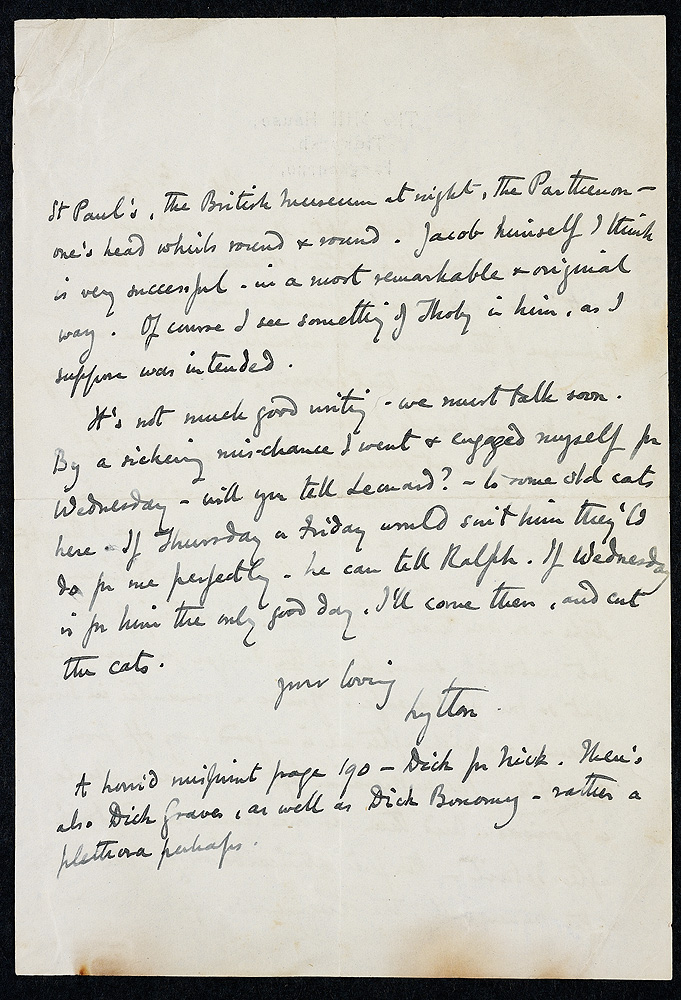 St Paul's, the British Museum at night, the Parthenon –
one's head whirls round & round. Jacob himself I think
is very successful – in a most remarkable & original
way. Of course I see something of Thoby in him, as I
suppose was intended.
It's not much good writing – we must talk soon.
By a sickening mis-chance I went & engaged myself for
Wednesday – will you tell Leonard? – to some old cats
here – If Thursday or Friday would suit him they'ld
do for me perfectly – he can tell Ralph. If Wednesday
is for him the only good day, I'll come then, and cut
the cats.
your loving
Lytton.
A horrid misprint page 190 – Dick for Nick. There's
also Dick Graves, as well as Dick Bonamy – rather a
plethora perhaps.